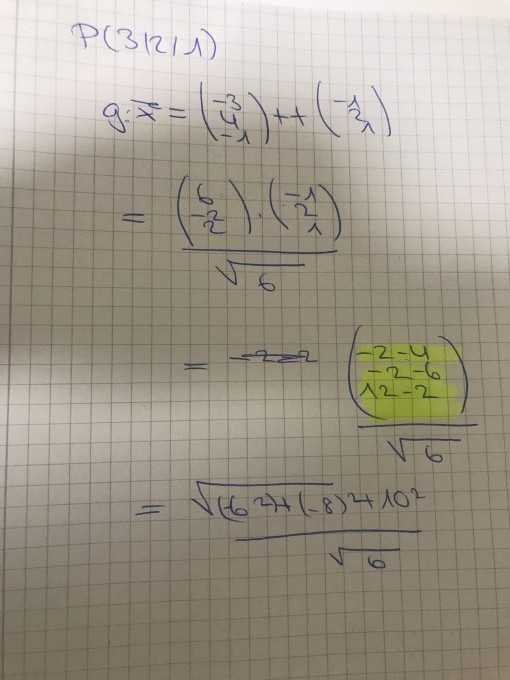 P(3|2|1)
g: x = (-3 4 -1) + t (-1 2 1)
= (6 -2 2) · (-1 2 1)
√6
= -2-2 (-2-4 -2-6 12-2)
√6
= √(-6²)+(-8)²+10²
√6